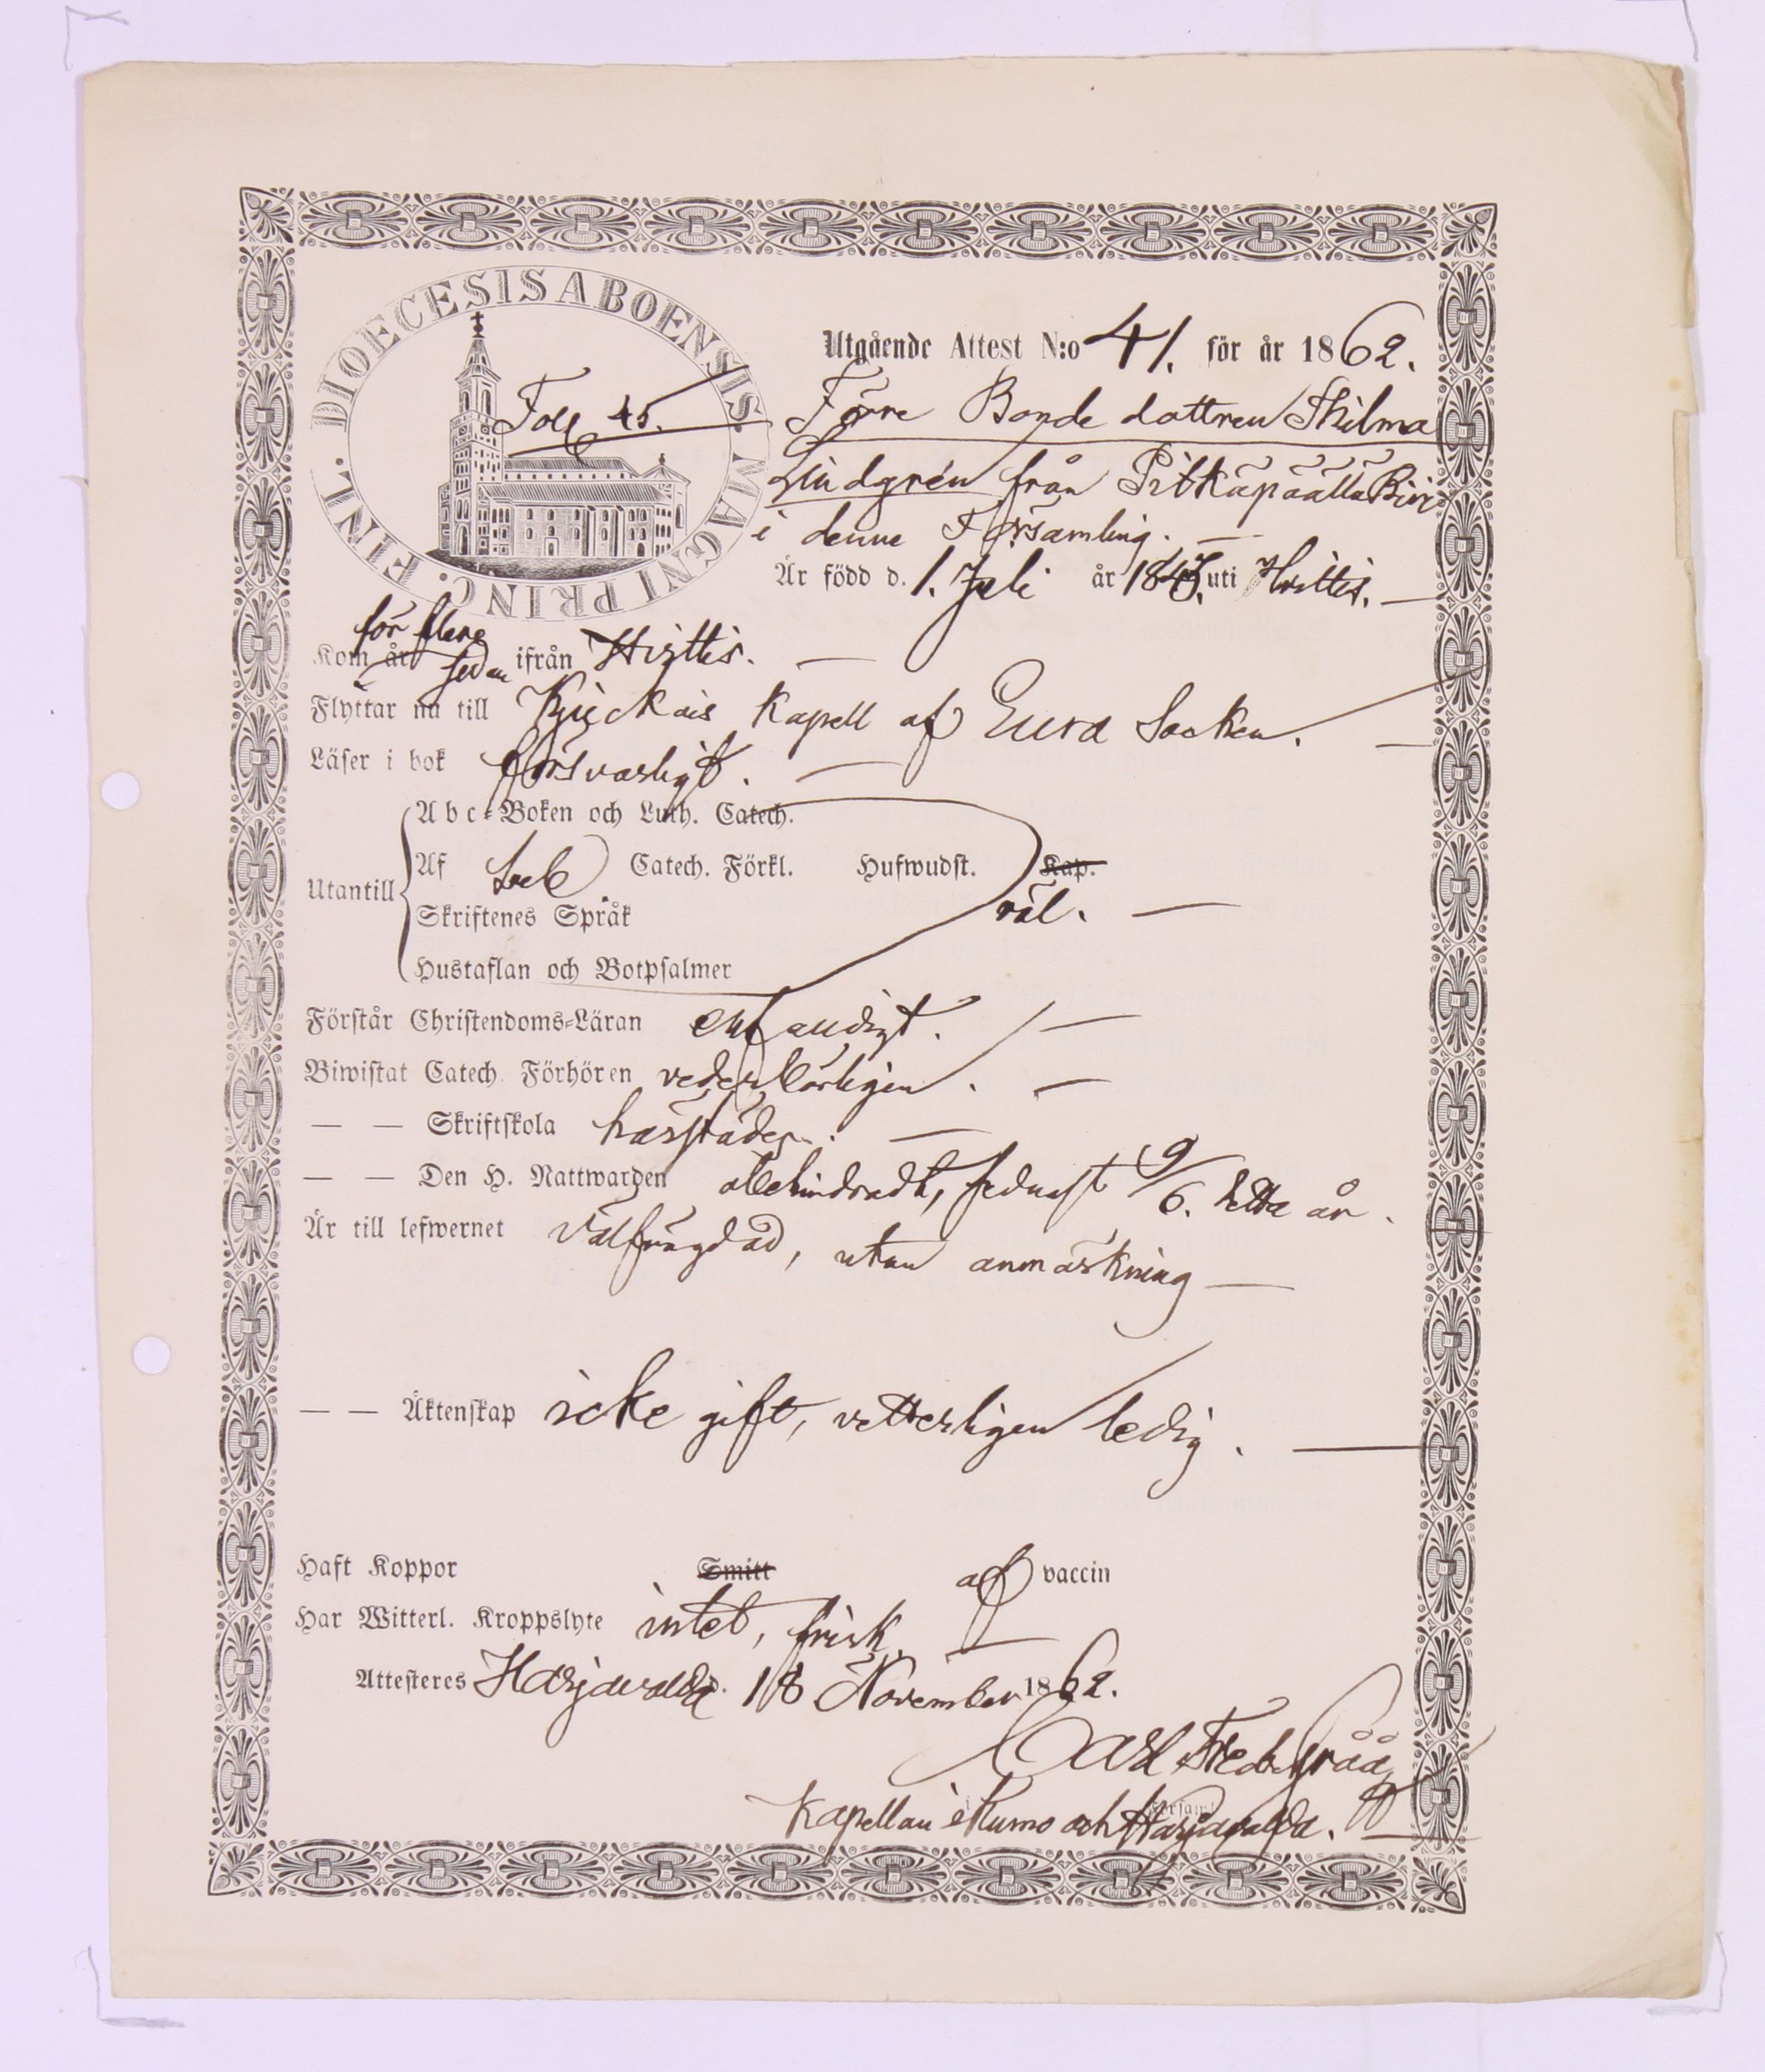 DIOECESIS ABOENSIS. MAGNI PRINC. FINL.
Utgående Attest N:o 41. för år 1862.
Foll 45.
Förre Bonde dottren Thilma
Lindgrén från Pitkäpäälla
i denne Församling. —
Är född d. 1. Juli år 1843. uti Hvittis. —
för flere
Kom år sedan ifrån Hvittis. —
Flyttar nu till Kjuckais Kapell af Eura Socken. —
Läser i bok försvarligt. —
Abc-Boken och Luth. Catech.
Utantill
Af Catech. Förkl. Hufwudst. Kap.
väl. —
Skriftenes Språk
Hustaflan och Botpsalmer
Förstår Christendoms-Läran enfaldigt. —
Biwistat Catech. Förhören vederbörligen. —
— — Skriftskola härstädes. —
— — Den H. Nattwarden obehindradt, sednast 9/6. detta år.
Är till lefwernet välfrägdad, utan anmärkning —
— — Äktenskap icke gift, vetterligen ledig. —
Haft Koppor Smitt af vaccin
Har Witterl. Kroppslyte intet, frisk. —
Attesteres Harjavalda d. 18 November 1862.
Carl Fredr Gråå
Kapellan i Kumo och Harjavalda.